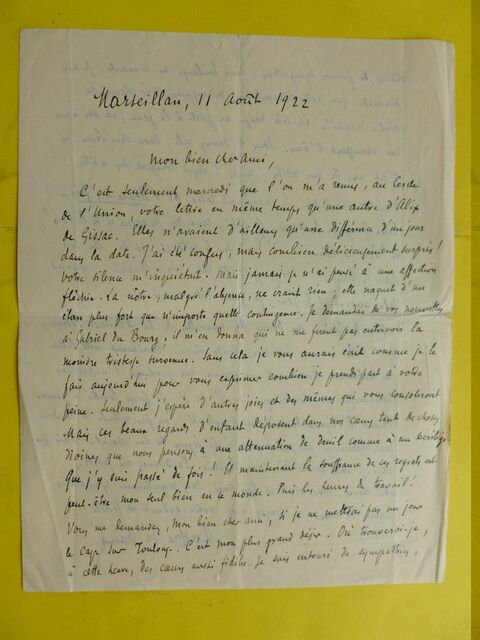 Marseillan, 11 Août 1922
Mon bien cher ami,
C'est seulement mercredi que l'on m'a remis, au Cercle
de l'Union, votre lettre en même temps qu'une autre d'Alix
de Gissac. Elles n'avaient d'ailleurs qu'une différence d'un jour
dans la date. J'ai été confus, mais combien délicieusement surpris!
Votre silence m'inquiétait. Mais jamais je n'ai pensé à une affection
fléchie. La nôtre, malgré l'absence, ne craint rien, elle naquit d'un
élan plus fort que n'importe quelle contingence. Je demandais de vos nouvelles
à Gabriel du Bourg, il m'en donna qui ne me firent pas entrevoir la
moindre tristesse survenue. Sans cela je vous aurais écrit comme je le
fais aujourd'hui pour vous exprimer combien je prends part à votre
peine. Seulement j'espère d'autres joies et des mêmes qui vous consoleront
Mais ces beaux regards d'enfant déposent dans nos cœurs tant de choses
divines que nous pensons à une atténuation de deuil comme à un sacrilège.
Que j'y suis passé de fois! Et maintenant la souffrance de ces regrets est
peut-être mon seul bien en ce monde. Puis les heures de travail!
Vous me demandez, mon bien cher ami, si je ne mettrai pas un jour
le cap sur Toulouse. C'est mon plus grand désir. Où trouverai-je,
à cette heure, des cœurs aussi fidèles. Je suis entouré de sympathies,